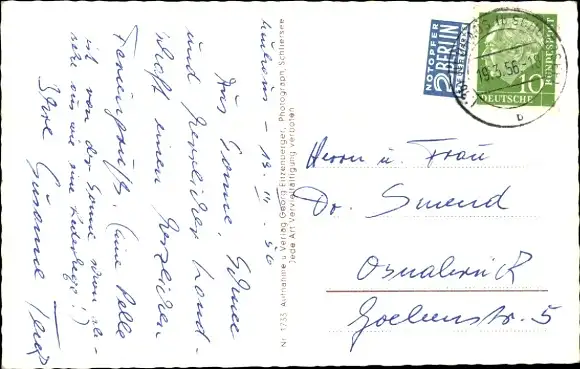 NOTOPFER
2 BERLIN
STEUERMARKE
19.3.56
b
10
DEUTSCHE
BUNDESPOST
13. III. 56
Aus Sonne, Schnee
und herrlicher Land-
schaft einen herzlichen
Feriengruß. (eine Pelle
ist von der Sonne schon
wie eine
Ihre Susanne
Nr. 1733 Aufnahme u. Verlag Georg Fitzenberger, Photograph, Schliersee
Jede Art Vervielfältigung verboten
Herrn u. Frau
Dr. Smend
Osnabrück
Goebenstr. 5